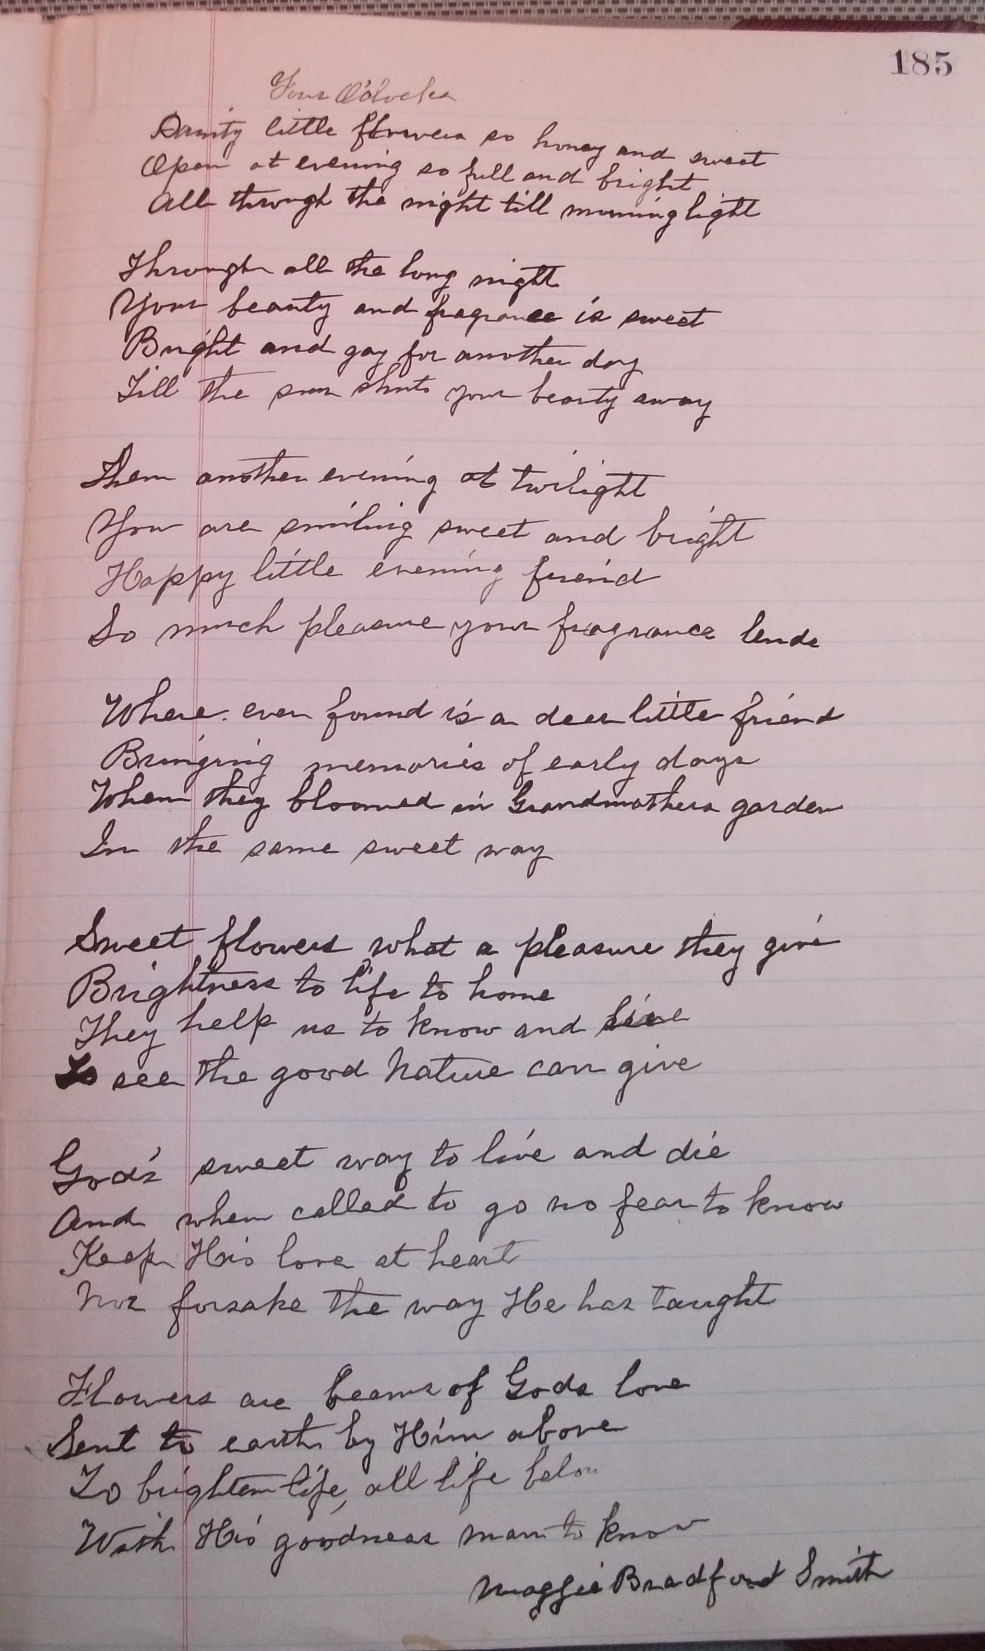 185
Four O'clocks
Dainty little flowers so honey and sweet
Open at evening so full and bright
All through the night till morning light
Through all the long night
Your beauty and fragrance is sweet
Bright and gay for another day
Till the sun shuts your beauty away
Then another evening at twilight
You are smiling sweet and bright
Happy little evening friend
So much pleasure your fragrance lends
Where ever found is a dear little friend
Bringing memories of early days
When they bloomed in Grandmothers garden
In the same sweet way
Sweet flowers what a pleasure they give
Brightness to life to home
They help us to know and live
To see the good Nature can give
God's sweet way to live and die
And when called to go no fear to know
Keep His love at heart
Nor forsake the way He has taught
Flowers are beams of Gods love
Sent to earth by Him above
To brighten life, all life below
With His goodness man to know
Maggie Bradford Smith